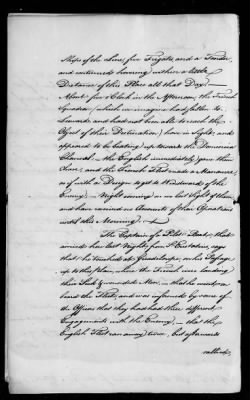 Ships of the Line, five Frigates, and a Tender,
and continued hovering within a little
Distance of this Place all that Day.
About five o'Clock in the Afternoon, the French
Squadron (which we imagine had fallen to
Leeward, and had not been able to reach the
Object of their Destination) hove in Sight, and
appeared to be beating up towards the Dominica
Channel — the English immediately gave them
Chase, and the French Fleet made a Manœuvre,
as if with a Design to get to Windward of the
Enemy — Night coming on we lost Sight of them,
and have received no Accounts of their Operations
until this Morning —
The Captain of a Pilot Boat, that
arrived here last Night from St. Eustatia, says
that he touched at Guadaloupe, on his Passage
up to this place, where the French were landing
their Sick & wounded Men — that he went on
board the Fleet, and was informed by some of
the Officers that they had had three different
Engagements with the Enemy, — that the
English Fleet ran away twice, but afterwards
rallied